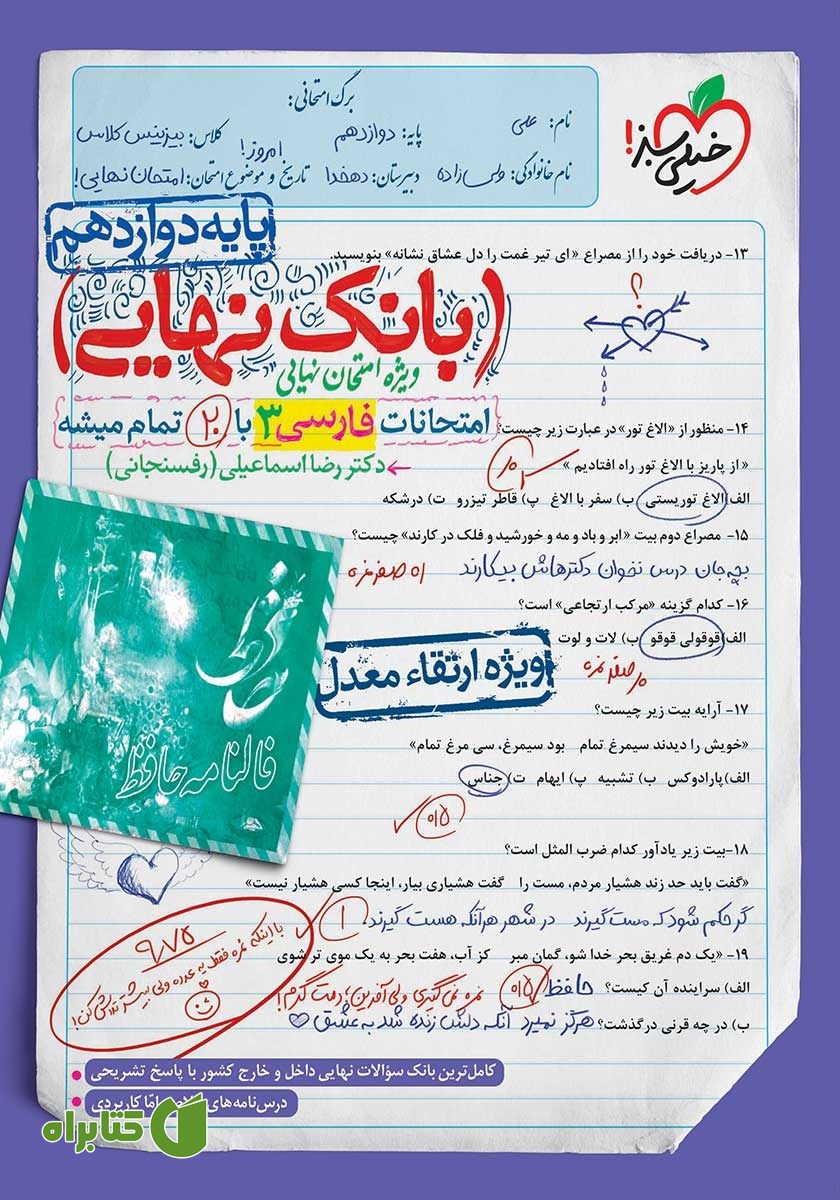 برگ امتحانی:
نام: علی
پایه: دوازدهم
کلاس: بیزینس کلاس
نام خانوادگی: ولی‌زاده
دبیرستان: دهخدا
امروز!
تاریخ و موضوع امتحان: امتحان نهایی!
خیلی سبز!
پایه دوازدهم
(بانک نهایی)
ویژه امتحان نهایی
امتحانات فارسی ۳ با ۲۰ تمام میشه
دکتر رضا اسماعیلی (رفسنجانی)
۱۳- دریافت خود را از مصراع «ای تیر غمت را دل عشاق نشانه» بنویسید.
؟
۱۴- منظور از «الاغ تور» در عبارت زیر چیست؟
«از پاریز با الاغ تور راه افتادیم»
الف) الاغ توریستی ب) سفر با الاغ پ) قاطر تیزرو ت) درشکه
۱۵- مصراع دوم بیت «ابر و باد و مه و خورشید و فلک در کارند» چیست؟
بچه جان درس نخوان دکترهاش بیکارند
اه صفر نمره
۱۶- کدام گزینه «مرکب ارتجاعی» است؟
الف) قوقولی قوقو ب) لات و لوت
صفر نمره
ویژه ارتقاء معدل
۱۷- آرایه بیت زیر چیست؟
«خویش را دیدند سیمرغ تمام بود سیمرغ، سی مرغ تمام»
الف) پارادوکس ب) تشبیه پ) ایهام ت) جناس
۰/۵
فالنامه حافظ
۱۸- بیت زیر یادآور کدام ضرب المثل است؟
«گفت باید حد زند هشیار مردم، مست را گفت هشیاری بیار، اینجا کسی هشیار نیست»
گر حکم شود که مست گیرند در شهر هر آنکه هست گیرند
۱
۱۹- «یک دم غریق بحر خدا شو، گمان مبر کز آب، هفت بحر به یک موی تر شوی
الف) سراینده آن کیست؟ حافظ
۰/۵
نمره نمی‌گیری ولی آفرین؛ دمت گرم!
ب) در چه قرنی درگذشت؟ هرگز نمیرد آنکه دلش زنده شد به عشق
۹/۷۵
با اینکه نمره فقط یه عدده ولی بیشتر تلاش کن!
کامل‌ترین بانک سؤالات نهایی داخل و خارج کشور با پاسخ تشریحی
درس‌نامه‌های امّا کاربردی
کتابراه